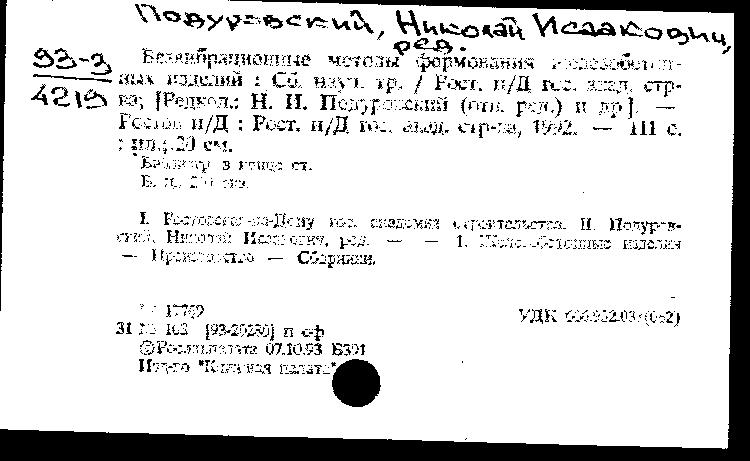 Подуровский, Николай Исаакович,
ред.
93-3
4219
Безвибрационные методы формования железобетон-
ных изделий : Сб. науч. тр. / Рост. н/Д гос. акад. стр-
ва; [Редкол.: Н. И. Подуровский (отв. ред.) и др]. —
Ростов н/Д : Рост. н/Д гос. акад. стр-ва, 1992. — 111 с.
: ил.; 20 см.
Библиогр. в конце ст.
I. Ростовская-на-Дону гос. академия строительства. II. Подуров-
ский, Николай Исаакович, ред. — — 1. Железобетонные изделия
— Производство — Сборники.
17769
УДК
31 № 103 [93-20280] п ф
©Рос.кн.палата 07.10.93 Б391
Изд-во "Книжная палата"